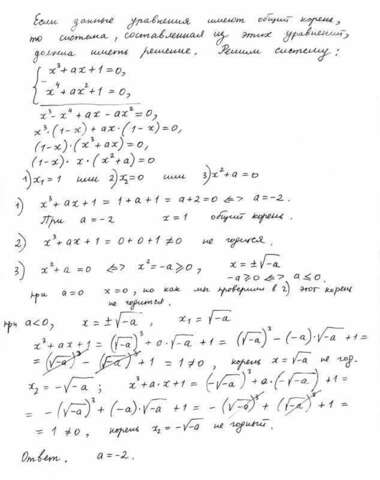 Если данные уравнения имеют общий корень,
то система, составленная из этих уравнений,
должна иметь решение. Решим систему:
{ x³+ax+1=0,
- x⁴+ax²+1=0,
x³-x⁴+ax-ax²=0,
x³·(1-x)+ax·(1-x)=0,
(1-x)·(x³+ax)=0,
(1-x)·x·(x²+a)=0
1) x₁=1 или 2) x₂=0 или 3) x²+a=0
1) x³+ax+1=1+a+1=a+2=0 <=> a=-2.
При a=-2 x=1 общий корень.
2) x³+ax+1=0+0+1≠0 не годится.
3) x²+a=0 <=> x²=-a≥0, x=±√-a
-a≥0 <=> a≤0.
при a=0 x=0, но как мы проверили в 2) этот корень
не годится.
при a<0, x=±√-a, x₁=√-a
x³+ax+1=(√-a)³+a·√-a+1=(√-a)³-(-a)·√-a+1=
=(√-a)³-(√-a)³+1=1≠0, корень x=√-a не год.
x₂=-√-a; x³+a·x+1=(-√-a)³+a·(-√-a)+1=
=-(√-a)³+(-a)·√-a+1=-(√-a)³+(√-a)³+1=
=1≠0, корень x₂=-√-a не годный.
Ответ. a=-2.